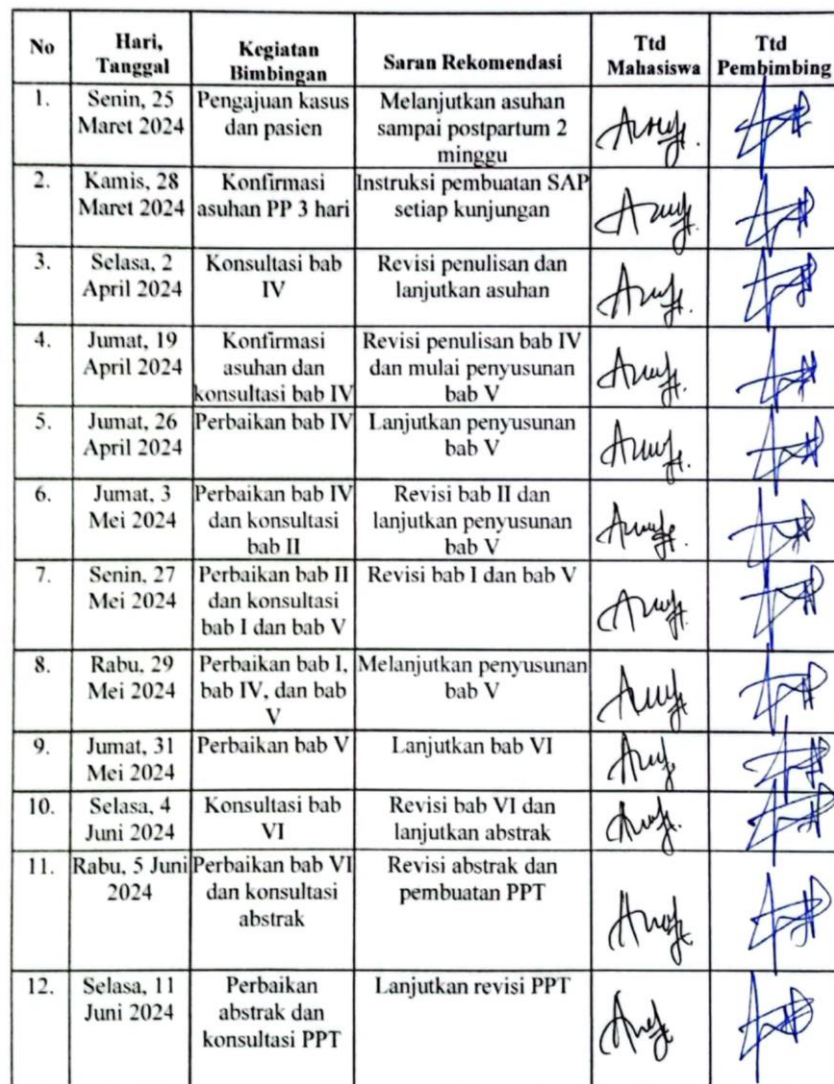 No Hari, Tanggal Kegiatan Bimbingan Saran Rekomendasi Ttd Mahasiswa Ttd Pembimbing
1. Senin, 25 Maret 2024 Pengajuan kasus dan pasien Melanjutkan asuhan sampai postpartum 2 minggu
2. Kamis, 28 Maret 2024 Konfirmasi asuhan PP 3 hari Instruksi pembuatan SAP setiap kunjungan
3. Selasa, 2 April 2024 Konsultasi bab IV Revisi penulisan dan lanjutkan asuhan
4. Jumat, 19 April 2024 Konfirmasi asuhan dan konsultasi bab IV Revisi penulisan bab IV dan mulai penyusunan bab V
5. Jumat, 26 April 2024 Perbaikan bab IV Lanjutkan penyusunan bab V
6. Jumat, 3 Mei 2024 Perbaikan bab IV dan konsultasi bab II Revisi bab II dan lanjutkan penyusunan bab V
7. Senin, 27 Mei 2024 Perbaikan bab II dan konsultasi bab I dan bab V Revisi bab I dan bab V
8. Rabu, 29 Mei 2024 Perbaikan bab I, bab IV, dan bab V Melanjutkan penyusunan bab V
9. Jumat, 31 Mei 2024 Perbaikan bab V Lanjutkan bab VI
10. Selasa, 4 Juni 2024 Konsultasi bab VI Revisi bab VI dan lanjutkan abstrak
11. Rabu, 5 Juni 2024 Perbaikan bab VI dan konsultasi abstrak Revisi abstrak dan pembuatan PPT
12. Selasa, 11 Juni 2024 Perbaikan abstrak dan konsultasi PPT Lanjutkan revisi PPT